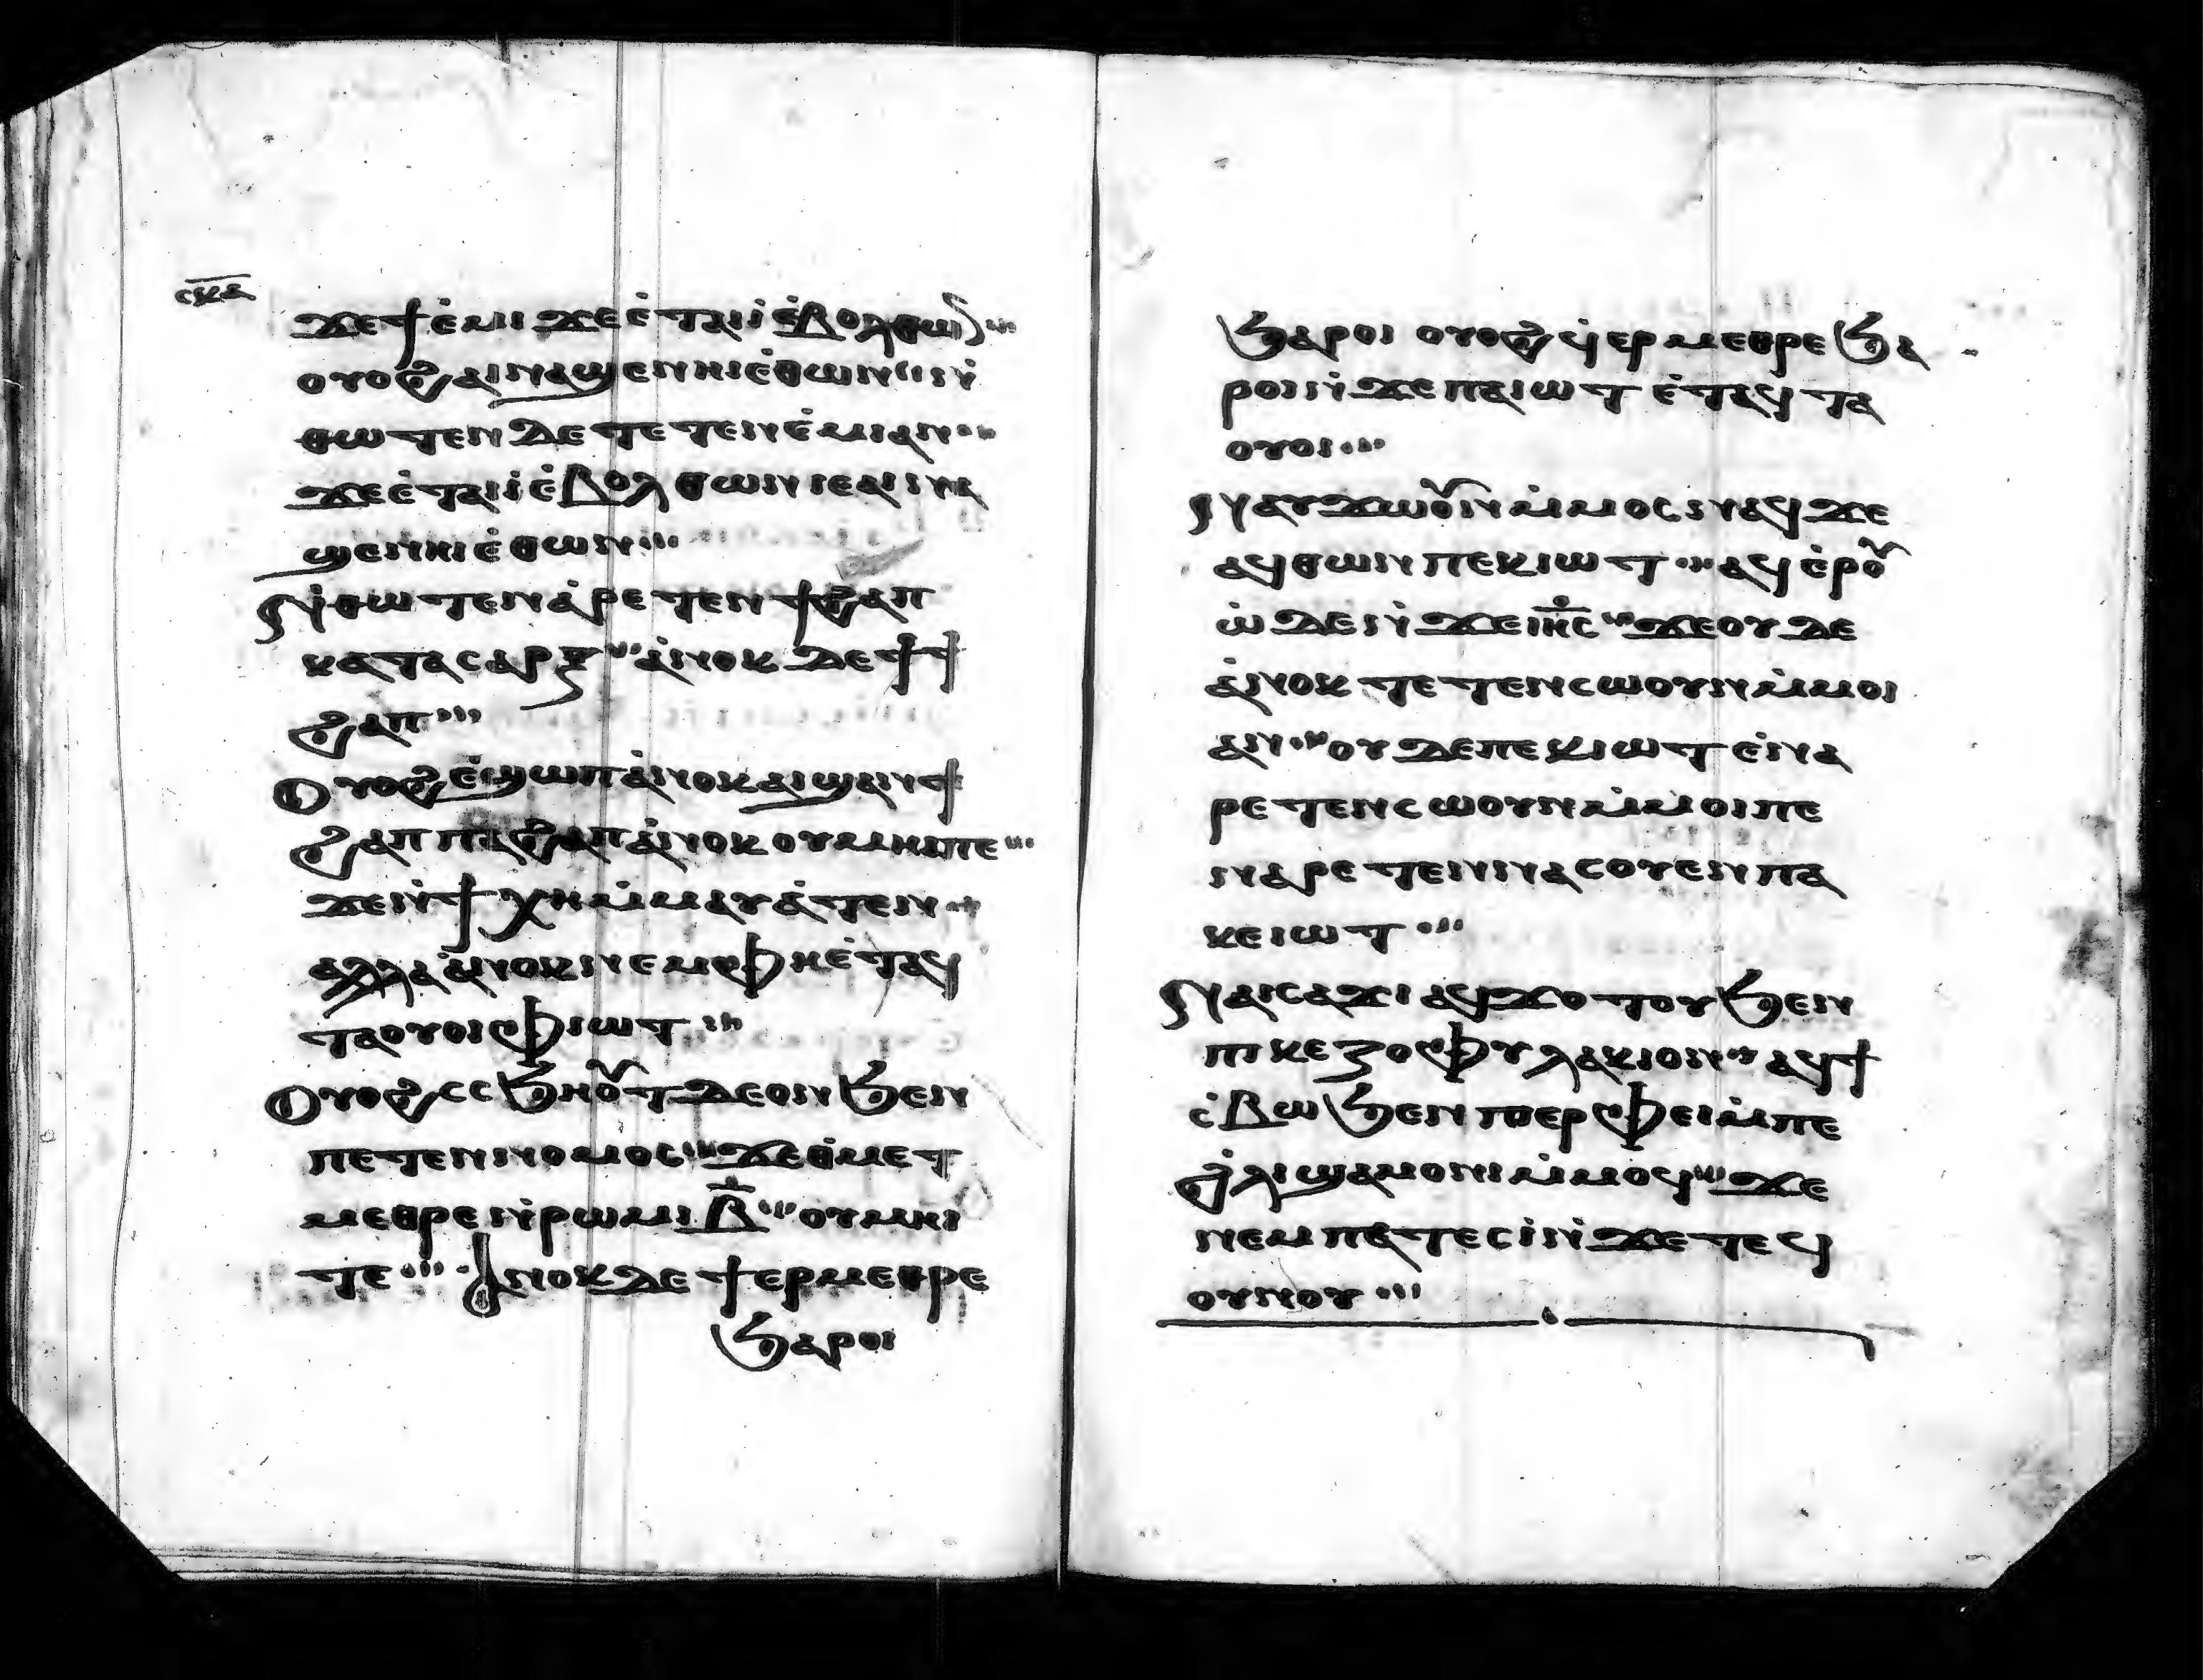 ⲥⲕⲇ
ϫⲉϯⲉ̀ⲙⲓ ϫⲉⲉ̀ⲧⲁⲓⲓ̀ⲉ̀ⲃⲟⲗⲑⲱⲛ ⁖
ⲟⲩⲟϩ ⲁⲓⲛⲁϣⲉⲛⲏⲓⲉ̀ⲑⲱⲛ ⁖ ⲛ̀
ⲑⲱⲧⲉⲛ ⲇⲉ ⲧⲉⲧⲉⲛⲉ̀ⲙⲓⲁⲛ ⁖
ϫⲉⲉ̀ⲧⲁⲓⲓ̀ⲉ̀ⲃⲟⲗ ⲑⲱⲛ ⲓⲉⲁⲓⲛⲁ
ϣⲉⲛⲏⲓⲉ̀ⲑⲱⲛ ⁖
ⲛ̀ⲑⲱⲧⲉⲛ ⲁ̀ⲣⲉⲧⲉⲛϯϩⲁⲡ
ⲕⲁⲧⲁⲥⲁⲣⲝ ⁖ ⲁ̀ⲛⲟⲕ ⲇⲉ ϯ̀ϯ
ϩⲁⲡ ⁖
ⲟⲩⲟϩ ⲉ̀ϣⲱⲡ ⲁ̀ⲛⲟⲕ ⲁⲓϣⲁⲛϯ
ϩⲁⲡ ⲡⲁϩⲁⲡ ⲁ̀ⲛⲟⲕ ⲟⲩⲙⲏⲓⲡⲉ ⁖
ϫⲉⲛ̀ϯ ⲭⲏ ⲙ̀ⲙⲁⲩⲁ̀ⲧⲉⲛ ⁖
ⲁⲗⲗⲁ ⲁ̀ⲛⲟⲕ ⲛⲉⲙⲫⲏⲉ̀ⲧⲁϥ
ⲧⲁⲟⲩⲟⲓ ⲫⲓⲱⲧ ⁖
ⲟⲩⲟϩ ⲥⲥϧⲏⲟⲩⲧ ⲇⲉⲟⲛ ϧⲉⲛ
ⲡⲉⲧⲉⲛⲛⲟⲙⲟⲥ ⁖ ϫⲉⲑ̀ⲙⲉⲧ
ⲙⲉⲑⲣⲉ ⲛ̀ⲣⲱⲙⲓ ⲃ̅ ⁖ ⲟⲩⲙⲏⲓ
ⲧⲉ ⁖ ⲁ̀ⲛⲟⲕ ⲇⲉ ϯⲉⲣⲙⲉⲑⲣⲉ
ϧⲁⲣⲟⲓ
ϧⲁⲣⲟⲓ ⲟⲩⲟϩ ϥ̀ⲉⲣⲙⲉⲑⲣⲉ ϧⲁ
ⲣⲟⲓ ⲛ̀ϫⲉ ⲡⲁⲓⲱⲧ ⲉ̀ⲧⲁϥⲧⲁ
ⲟⲩⲟⲓ ⁖
ⲛⲁⲩϫⲱⲟⲩⲛ ⲙ̀ⲙⲟⲥ ⲛⲁϥ ϫⲉ
ⲁϥⲑⲱⲛ ⲡⲉⲕⲓⲱⲧ ⁖ ⲁϥⲉ̀ⲣⲟⲩ
ⲱ̀ ⲇⲉ ⲛ̀ϫⲉ ⲓⲏ̅ⲥ ⁖ ϫⲉⲟⲩⲇⲉ
ⲁ̀ⲛⲟⲕ ⲧⲉⲧⲉⲛⲥⲱⲟⲩⲛ ⲙ̀ⲙⲟⲓ
ⲁⲛ ⁖ ⲟⲩⲇⲉ ⲡⲉⲕⲓⲱⲧ ⲉ̀ⲛⲁ
ⲣⲉⲧⲉⲛⲥⲱⲟⲩⲛ ⲙ̀ⲙⲟⲓ ⲡⲉ
ⲛⲁⲣⲉⲧⲉⲛⲛⲁⲥⲟⲩⲉⲛ ⲡⲁ
ⲕⲉⲓⲱⲧ ⁖
ⲛⲁⲓⲥⲁϫⲓ ⲁϥϫⲟⲧⲟⲩ ϧⲉⲛ
ⲡⲓⲕⲉⲍⲟⲫⲩⲗⲁⲕⲓⲟⲛ ⁖ ⲁϥϯ
ⲥ̀ⲃⲱ ϧⲉⲛ ⲡⲓⲉⲣⲫⲉⲓ ⲙ̀ⲡⲉ
ϩ̀ⲗⲓϣⲁⲙⲟⲛⲓ ⲙ̀ⲙⲟϥ ⁖ ϫⲉ
ⲛⲉⲙⲡⲁⲧⲉⲥⲓ̀ ⲛ̀ϫⲉ ⲧⲉϥ
ⲟⲩⲛⲟⲩ ⁖